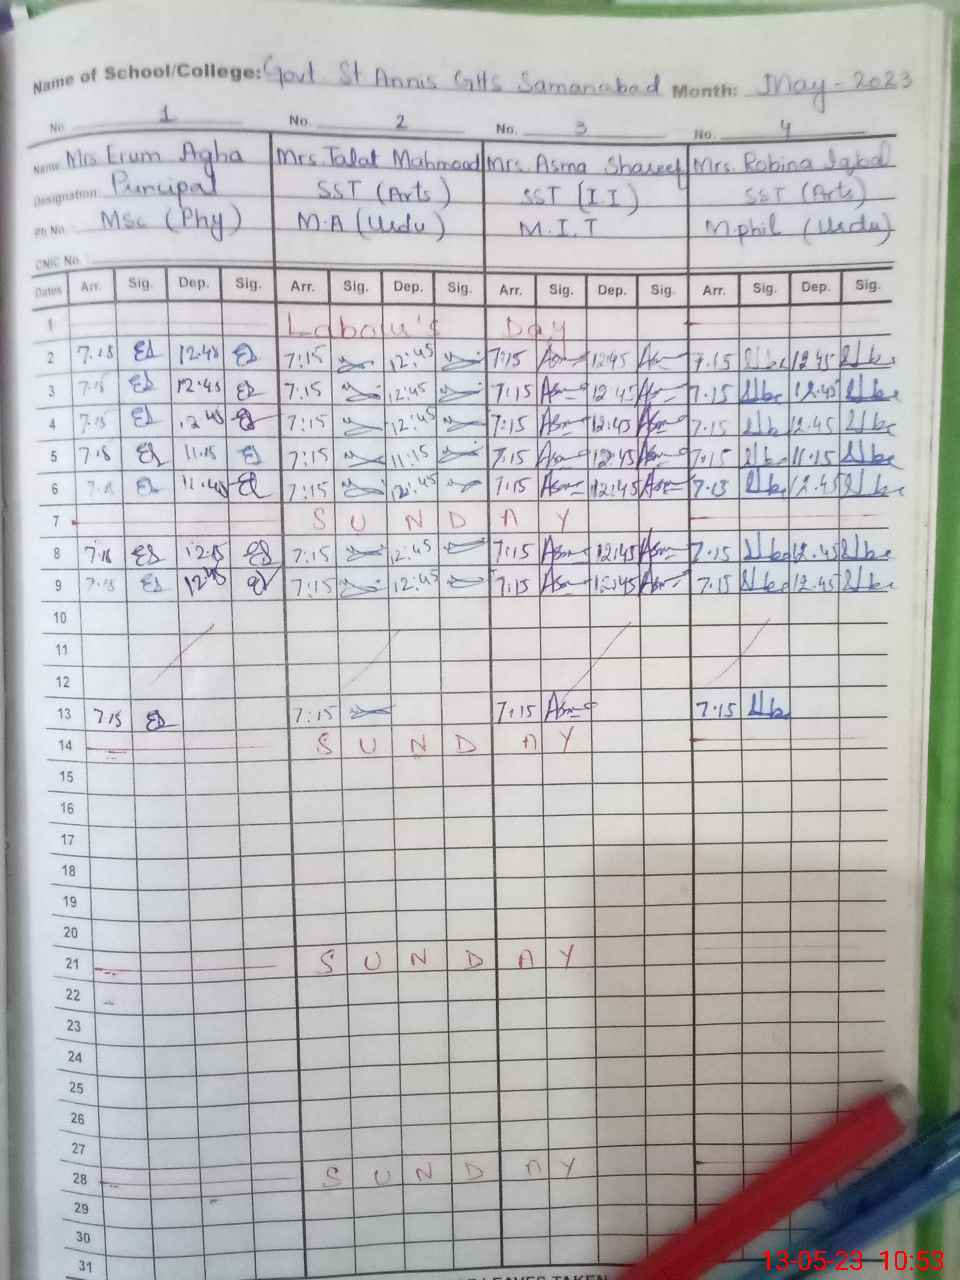 Name of School/College: Govt. St Annis GHS Samanabad Month: May-2023
No. 1 No. 2 No. 3 No. 4
Name Mrs Erum Agha Mrs. Talat Mahmood Mrs. Asma Shareef Mrs. Robina Iqbal
Designation: Puncipal SST (Arts) SST (I.I) SST (Arts)
Ph No. MSc (Phy) M.A (Urdu) M.I.T M.phil (Urdu)
CNIC No.
Dates Arr. Sig. Dep. Sig. Arr. Sig. Dep. Sig. Arr. Sig. Dep. Sig. Arr. Sig. Dep. Sig.
1 Labour's Day
2 7.15 12.45 7:15 12:45 7:15 12:45 7.15 12.45
3 7.15 12.45 7:15 12:45 7:15 12:45 7.15 12.45
4 7.15 12.45 7:15 12:45 7:15 12:45 7.15 12.45
5 7.15 11.15 7:15 11:15 7.15 12.45 7.15 11.15
6 7.15 11.45 7:15 12:45 7.15 12:45 7.15 12.45
7 SUNDAY
8 7.15 12.15 7:15 12:45 7:15 12:45 7.15 12.45
9 7.15 12.45 7:15 12:45 7:15 12:45 7.15 12.45
10
11
12
13 7.15 7:15 7:15 7.15
14 SUNDAY
15
16
17
18
19
20
21 SUNDAY
22
23
24
25
26
27
28 SUNDAY
29
30
31
LEAVES TAKEN
13-05-23 10:53